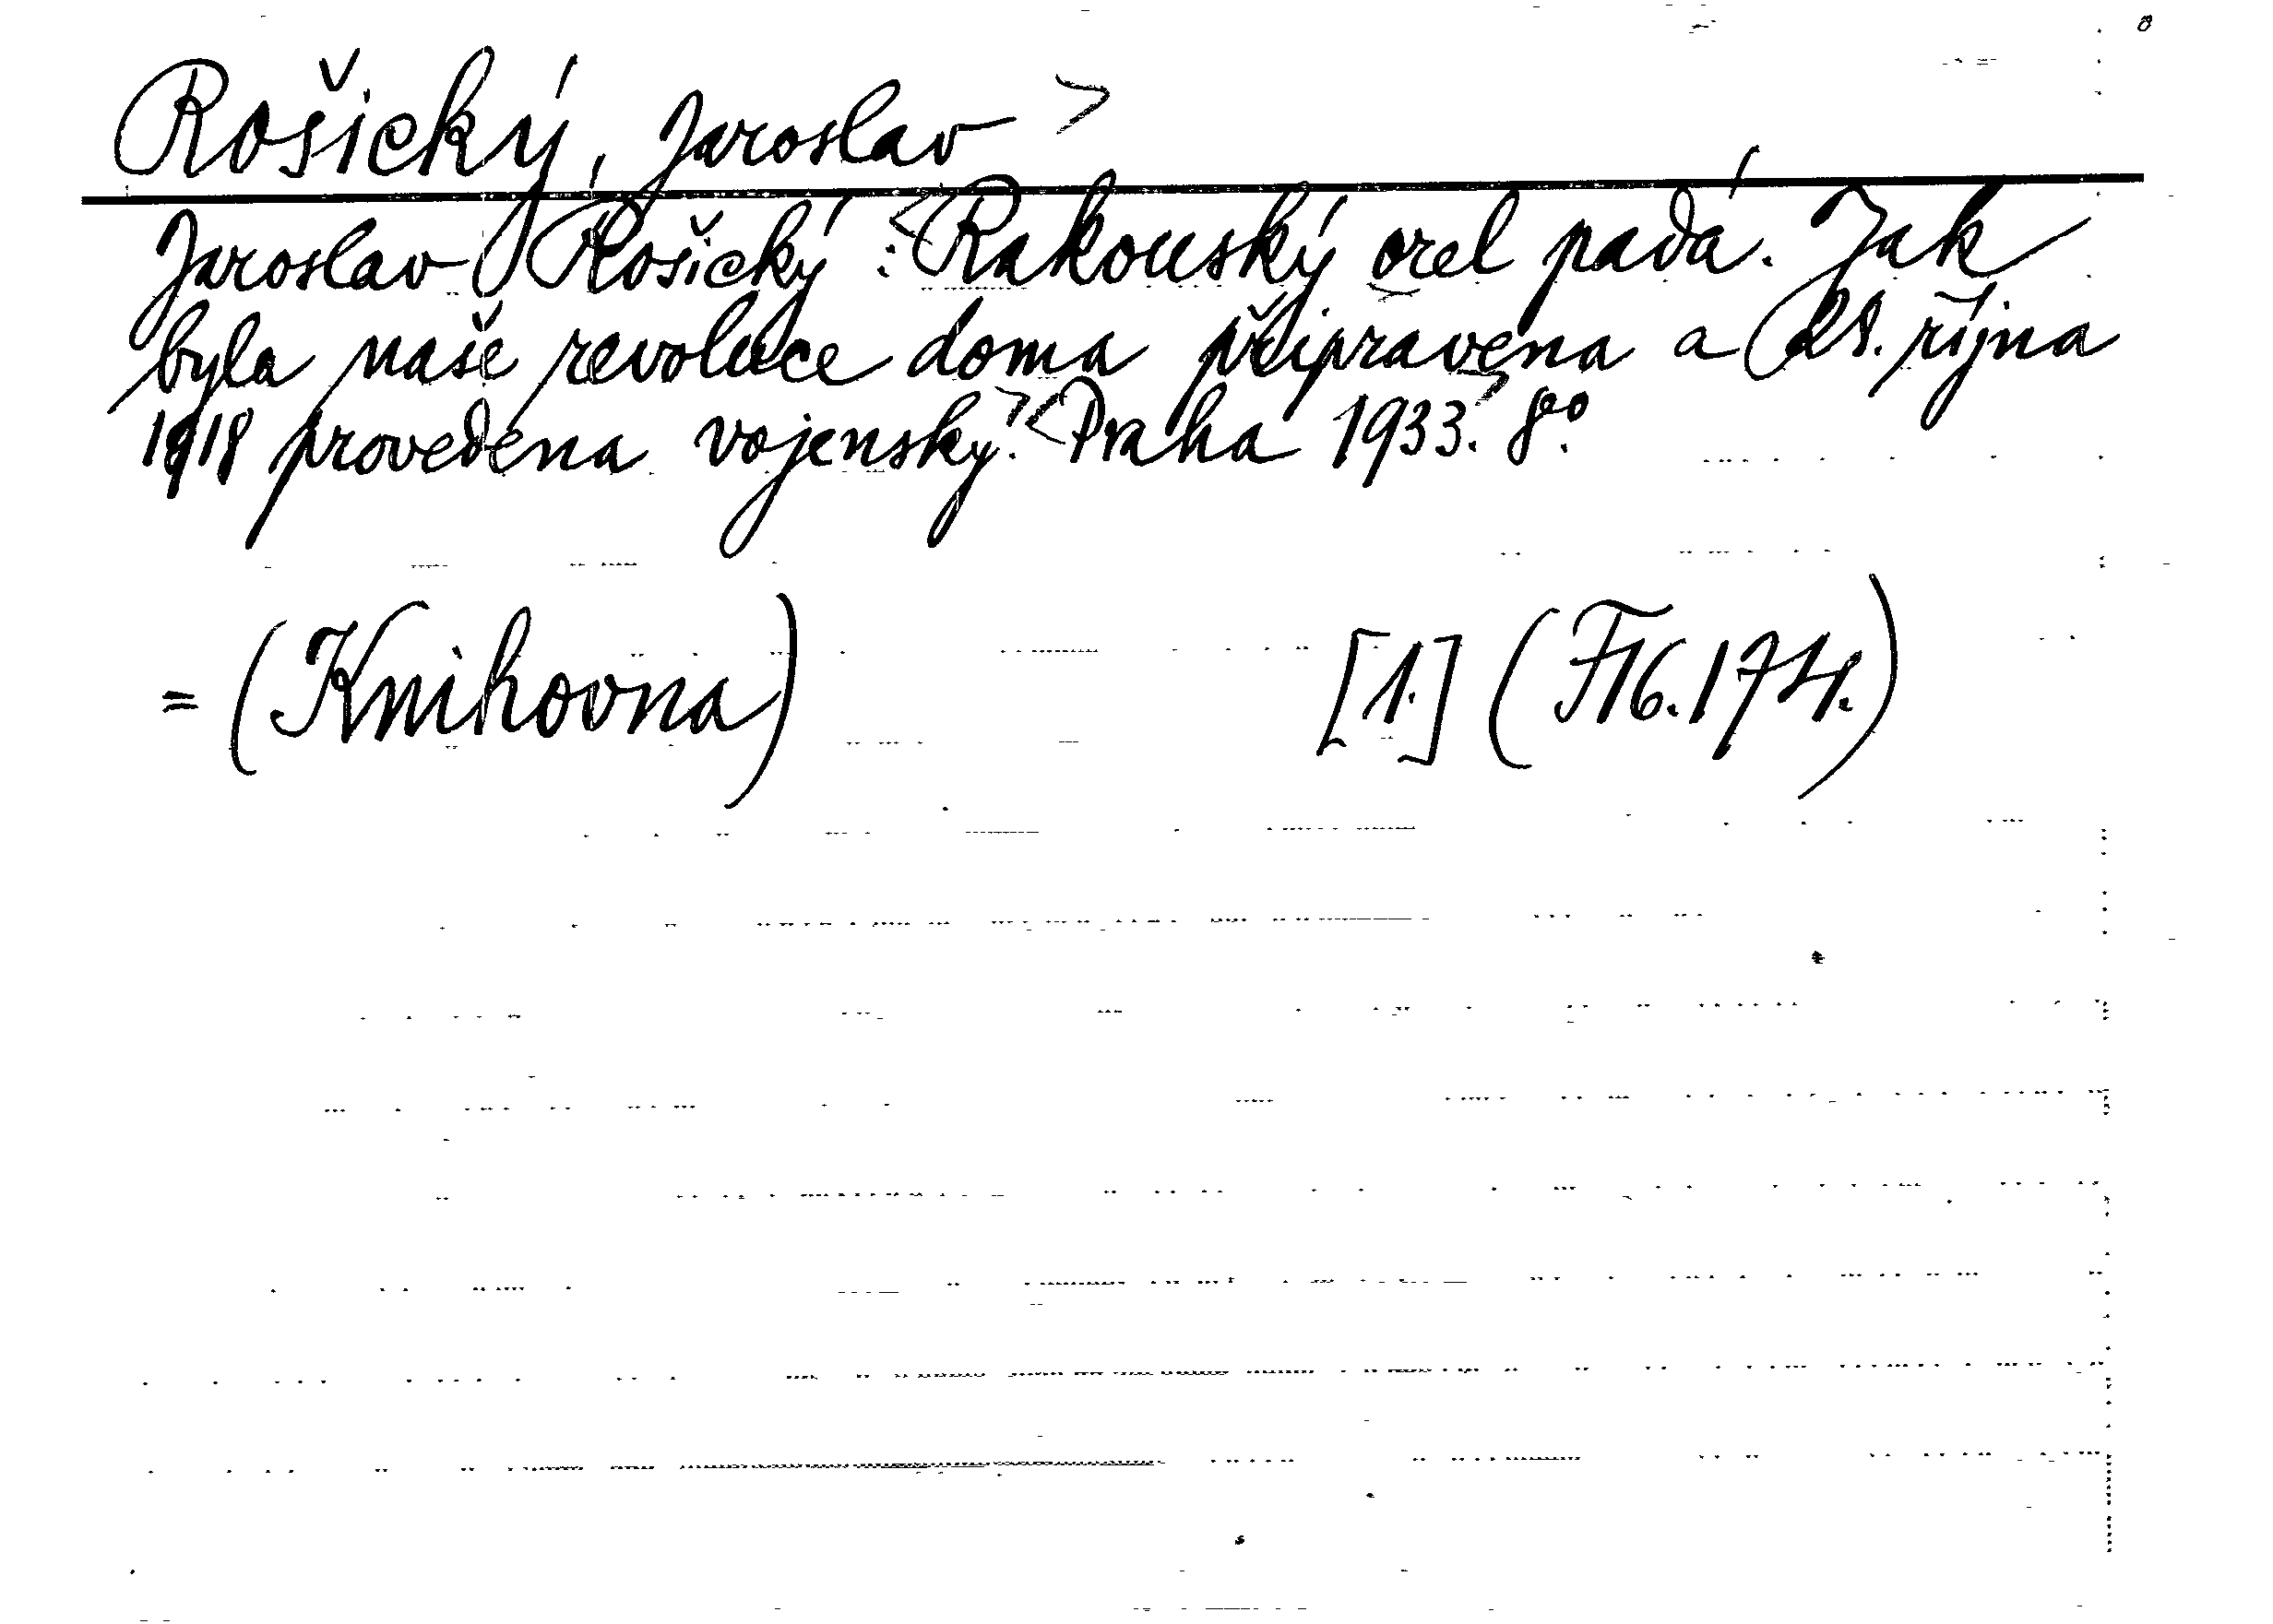 Rošický, Jaroslav >
Jaroslav Rošický : <Rakouský orel padá. Jak
byla naše revoluce doma připravena a 28. října
1918 provedena vojensky.> <Praha 1933.> 8°.
= (Knihovna) [1.] (F16.174.)